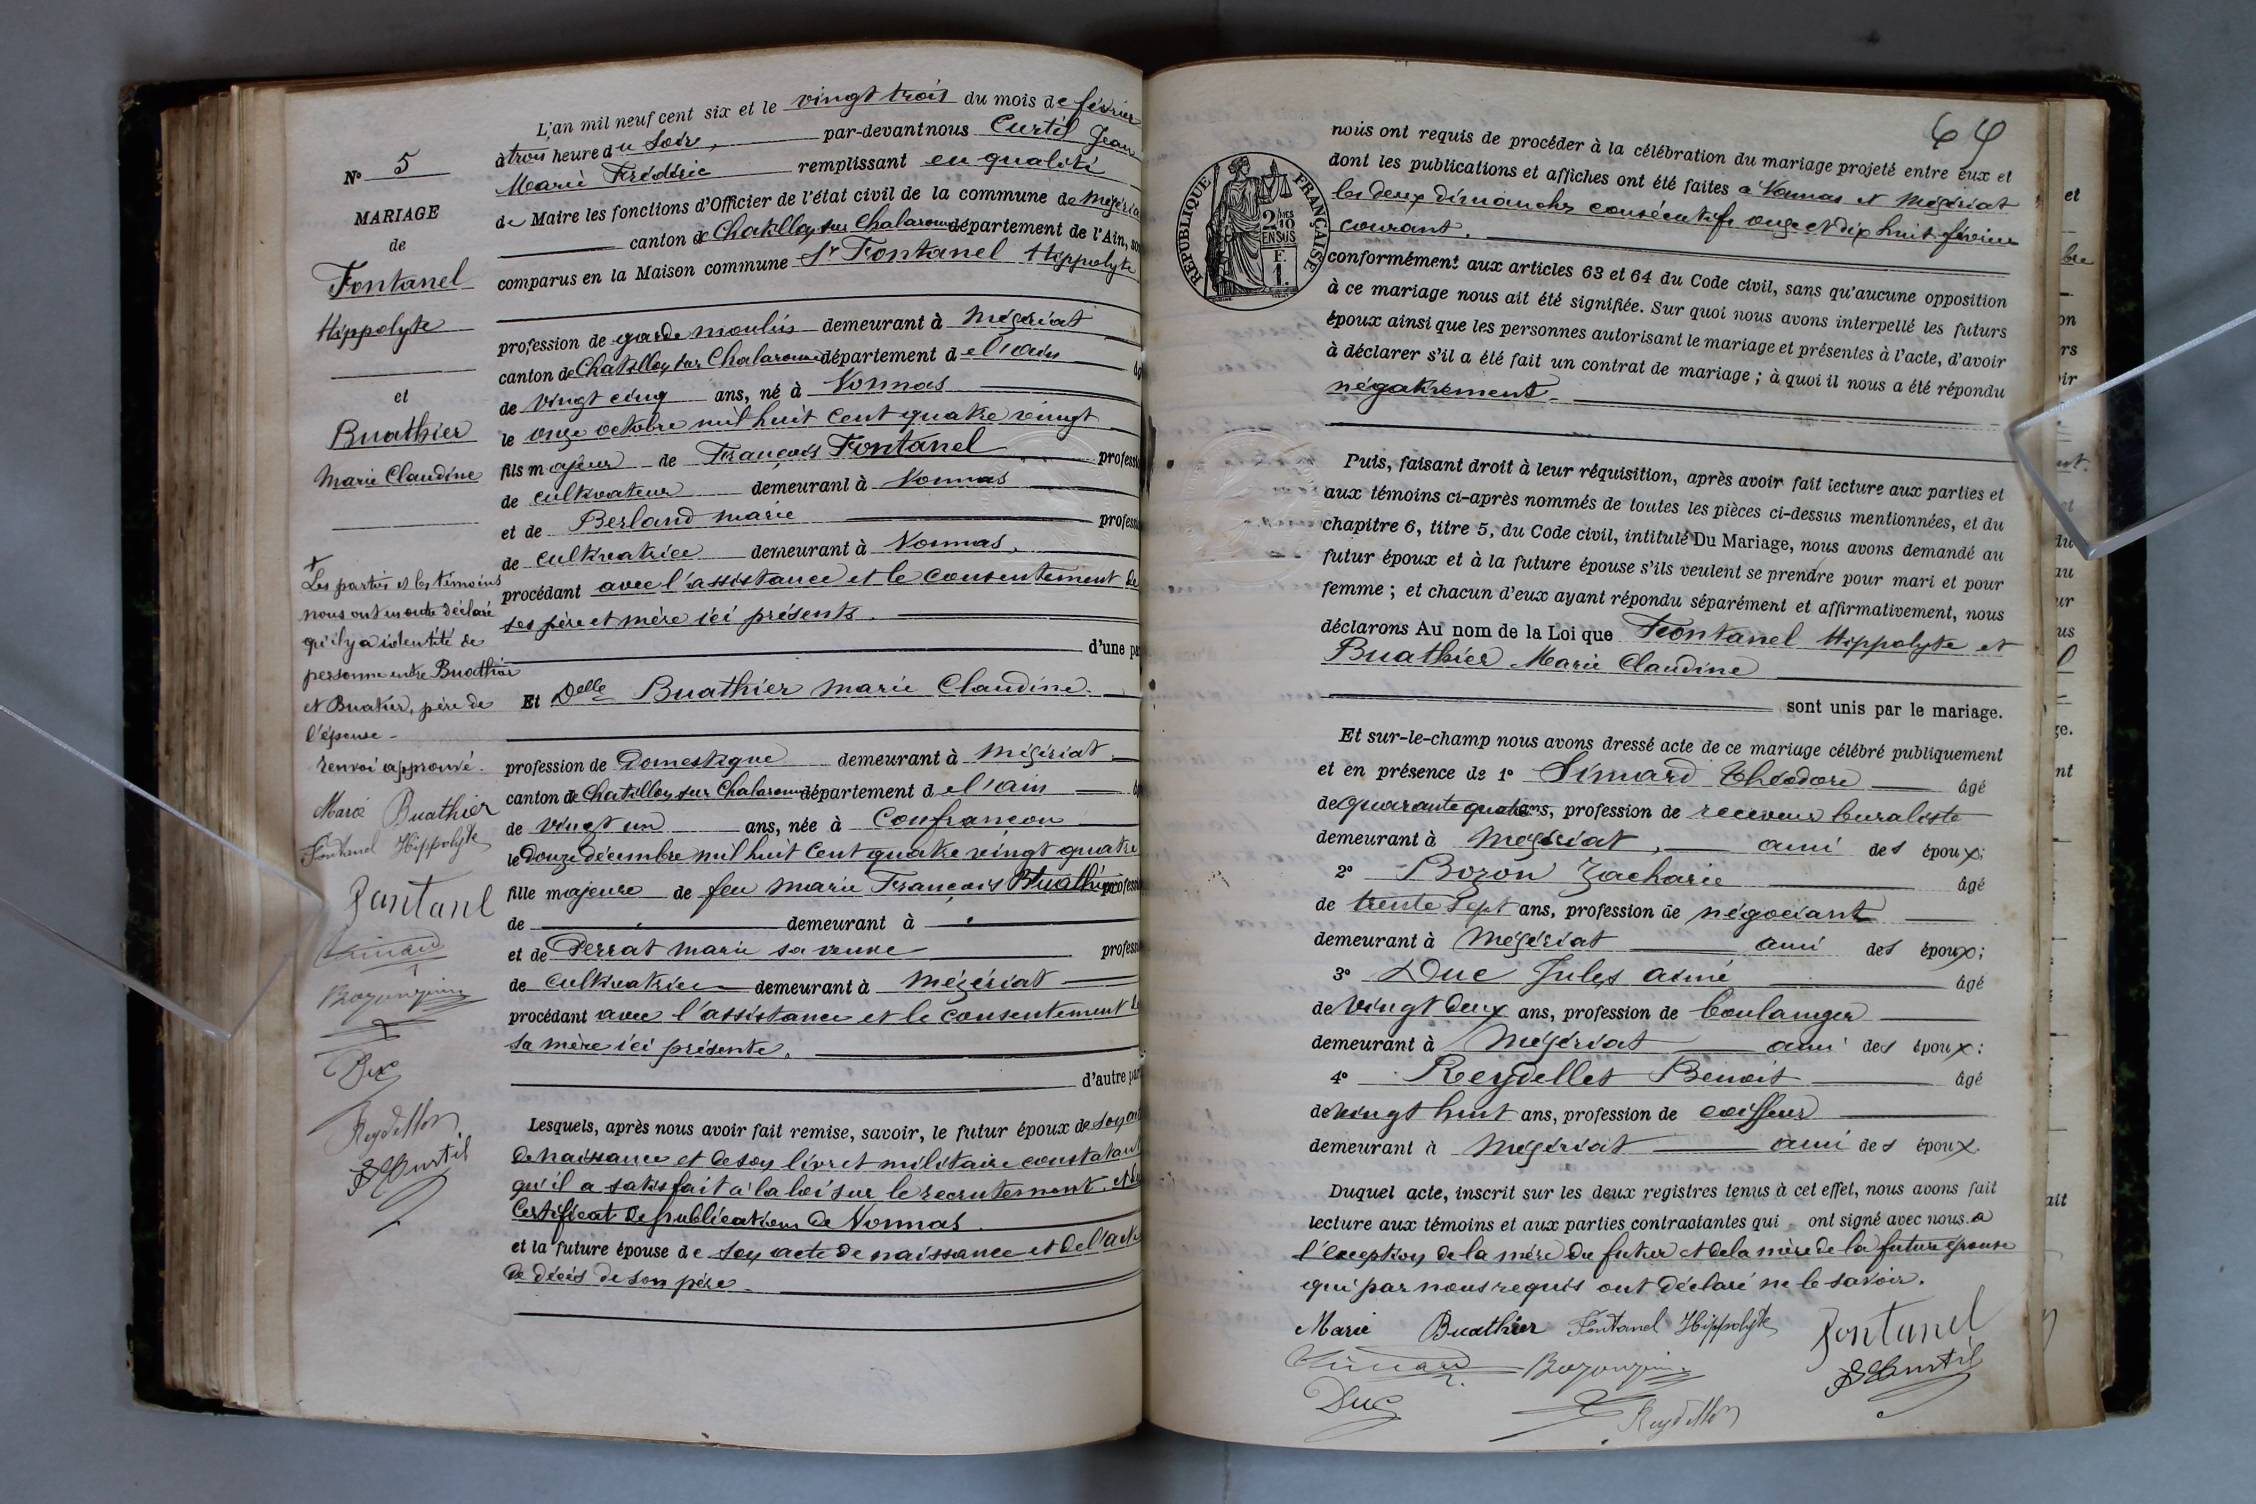 N° 5
MARIAGE
de
Fontanel
Hippolyte
et
Buathier
Marie Claudine
Les parties et les témoins
nous ont en outre déclaré
qu'il y a identité de
personne entre Buathier
et Buatier, père de
l'épouse
renvoi approuvé.
Marie Buathier
Fontanel Hippolyte
Fontanel
Duc
L'an mil neuf cent six et le vingt trois du mois de février
à trois heure du Soir, par-devant nous Curtil Jean
Marie Frédéric remplissant en qualité
de Maire les fonctions d'Officier de l'état civil de la commune de Mézériat
canton de Chatillon sur Chalaronne département de l'Ain, so
comparus en la Maison commune Sr Fontanel Hippolyte
profession de garde moulin demeurant à Mézériat
canton de Chatillon sur Chalaronne département de l'Ain
de vingt cinq ans, né à Vonnas
le onze octobre mil huit cent quatre vingt
fils majeur de François Fontanel professi
de cultivateur demeurant à Vonnas
et de Berland Marie professi
de cultivatrice demeurant à Vonnas,
procédant avec l'assistance et le consentement de
ses père et mère ici présents.
d'une pa
Et Delle Buathier Marie Claudine.
profession de Domestique demeurant à Mézériat
canton de Chatillon sur Chalaronne département de l'Ain
de vingt un ans, née à Confrançon
le Douze décembre mil huit cent quatre vingt quatre
fille majeure de feu Marie François Buathier profess
de demeurant à
et de Perrat Marie sa veuve profess
de cultivatrice demeurant à Mézériat
procédant avec l'assistance et le consentement de
sa mère ici présente.
d'autre par
Lesquels, après nous avoir fait remise, savoir, le futur époux de son
de naissance et de son livret militaire constatant
qu'il a satisfait à la loi sur le recrutement, et du
certificat de publications de Vonnas
et la future épouse de son acte de naissance et de l'acte
de décès de son père.
64
RÉPUBLIQUE FRANÇAISE
nous ont requis de procéder à la célébration du mariage projeté entre eux et
dont les publications et affiches ont été faites à Vonnas et Mézériat
les deux dimanches consécutifs onze et dix huit février
courant.
conformément aux articles 63 et 64 du Code civil, sans qu'aucune opposition
à ce mariage nous ait été signifiée. Sur quoi nous avons interpellé les futurs
époux ainsi que les personnes autorisant le mariage et présentes à l'acte, d'avoir
à déclarer s'il a été fait un contrat de mariage ; à quoi il nous a été répondu
négativement.
Puis, faisant droit à leur réquisition, après avoir fait lecture aux parties et
aux témoins ci-après nommés de toutes les pièces ci-dessus mentionnées, et du
chapitre 6, titre 5, du Code civil, intitulé Du Mariage, nous avons demandé au
futur époux et à la future épouse s'ils veulent se prendre pour mari et pour
femme ; et chacun d'eux ayant répondu séparément et affirmativement, nous
déclarons Au nom de la Loi que Fontanel Hippolyte et
Buathier Marie Claudine
sont unis par le mariage.
Et sur-le-champ nous avons dressé acte de ce mariage célébré publiquement
et en présence de 1° Simard Théodore âgé
de quarante quatre ans, profession de receveur buraliste
demeurant à Mézériat, ami des époux;
2° Bozon Zacharie âgé
de trente sept ans, profession de négociant
demeurant à Mézériat ami des époux;
3° Duc Jules Aimé âgé
de vingt deux ans, profession de boulanger
demeurant à Mézériat ami des époux;
4° Reydellet Benoit âgé
de vingt huit ans, profession de coiffeur
demeurant à Mézériat ami des époux.
Duquel acte, inscrit sur les deux registres tenus à cet effet, nous avons fait
lecture aux témoins et aux parties contractantes qui ont signé avec nous à
l'exception de la mère du futur et de la mère de la future épouse
qui par nous requis ont déclaré ne le savoir.
Marie Buathier Fontanel Hippolyte Fontanel
Duc